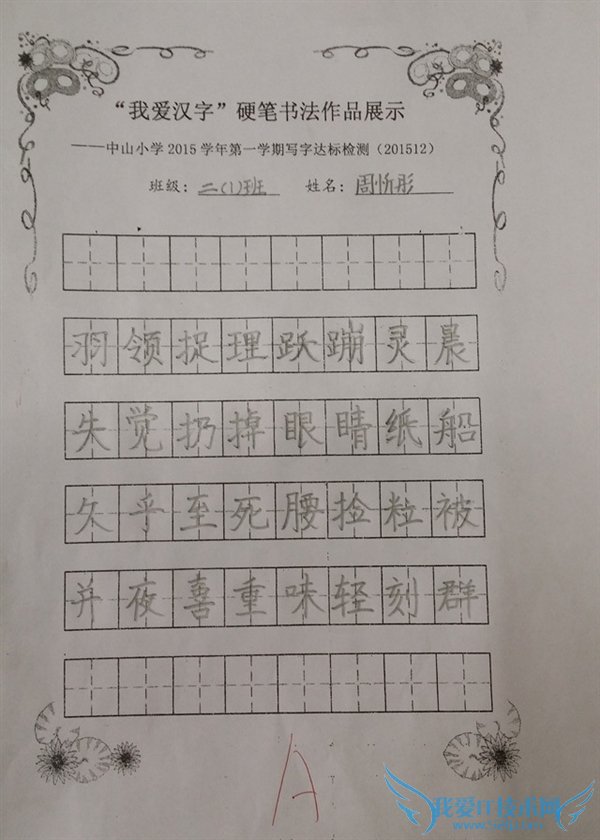 “我爱汉字”硬笔书法作品展示
——中山小学2015学年第一学期写字达标检测（201512）
班级：二（1）班 姓名：周忻彤
羽领捉理跃蹦灵晨
失觉扔掉眼睛纸船
久乎至死腰捡粒被
并夜喜重味轻刻群
A
我爱IT技术网